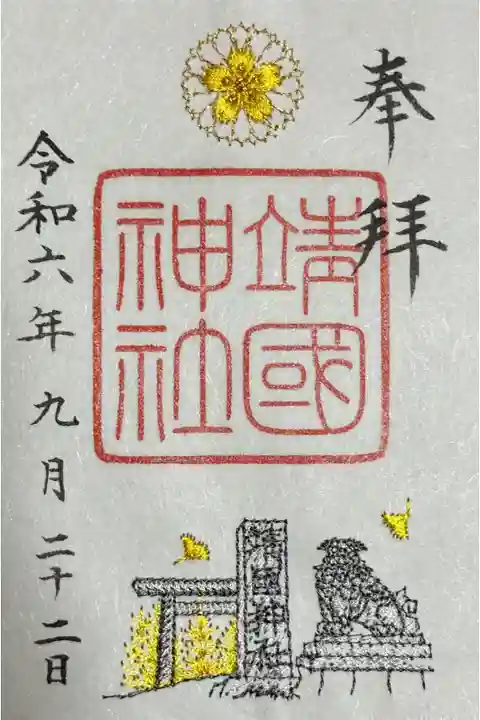 奉拝
靖國
神社
令和六年九月二十二日
靖国神社